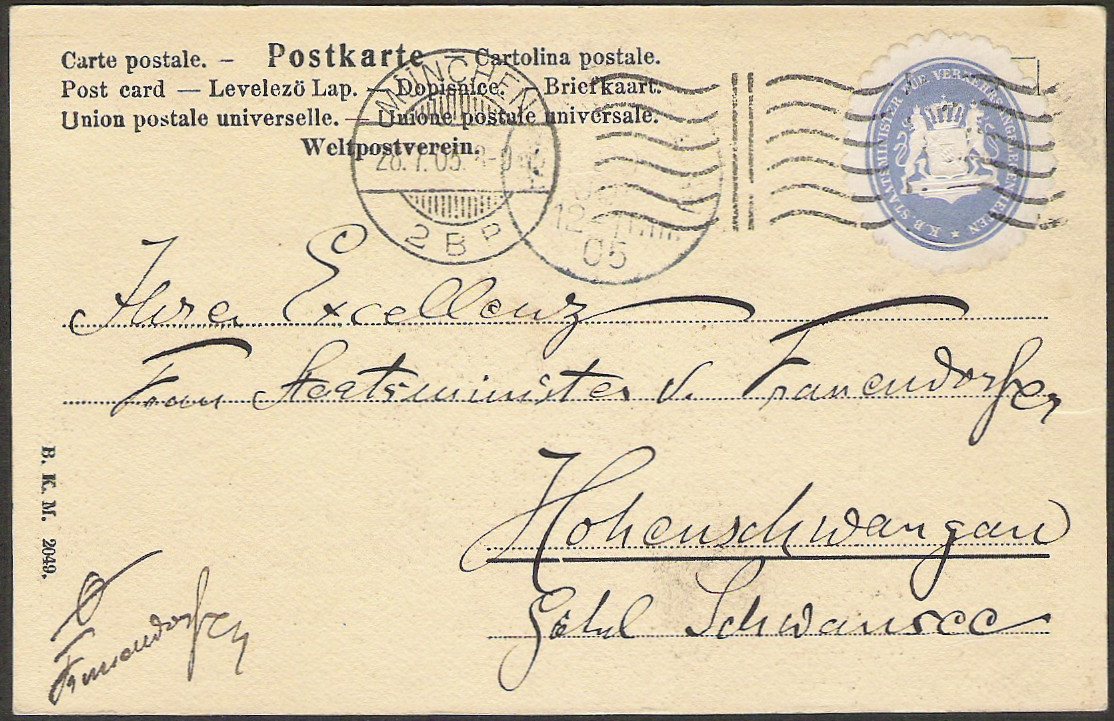 Carte postale. – Postkarte Cartolina postale.
Post card — Levelező Lap. — Dopisnice. — Briefkaart.
Union postale universelle. — Unione postale universale.
Weltpostverein.
MÜNCHEN
28. 7. 05.
2 B P
12
05
K.B. STAATSMINISTER FÜR VERKEHRSANGELEGENHEITEN ★
Ihrer Excellenz
Frau Staatsminister v. Frauendorfer
Hohenschwangau
Hôtel Schwansee
B. K. M. 2049.
Frauendorfer